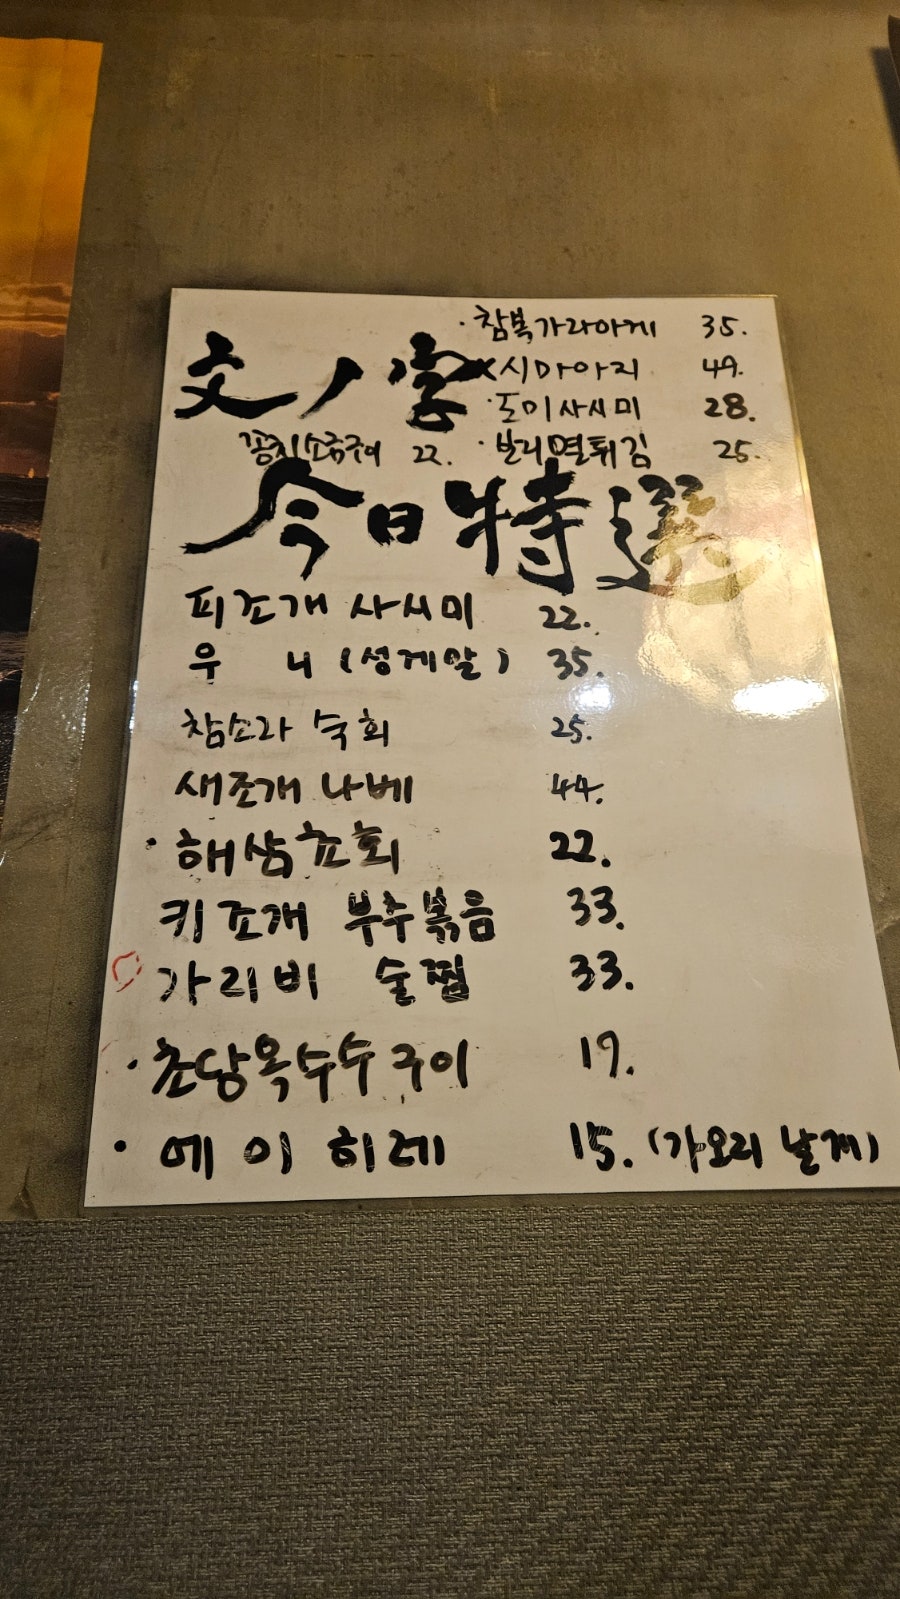 · 참복가라아게 35.
文ノ字
시마아지 49.
· 도미사시미 28.
꽁치소금구이 22.
· 보리멸튀김 25.
今日特選
피조개 사시미 22.
우니(성게알) 35.
참소라 숙회 25.
새조개 나베 44.
· 해삼초회 22.
키조개 부추볶음 33.
가리비 술찜 33.
· 초당옥수수구이 17.
· 에이히레 15. (가오리 날개)